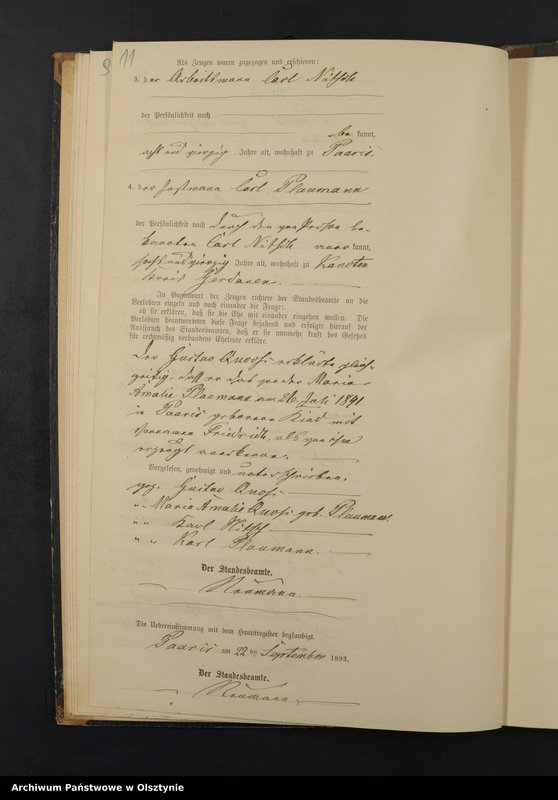 11
Als Zeugen waren zugezogen und erschienen:
3. der Arbeitsmann Carl Nitsch
der Persönlichkeit nach
be kannt,
acht und vierzig Jahre alt, wohnhaft zu Paaris.
4. der Carl Plaumann
der Persönlichkeit nach durch den von Person be-
kannten Carl Nitsch aner kannt,
sechs und vierzig Jahre alt, wohnhaft zu Kanoten
Kreis Gerdauen.
In Gegenwart der Zeugen richtete der Standesbeamte an die
Verlobten einzeln und nach einander die Frage:
ob sie erklären, daß sie die Ehe mit einander eingehen wollen. Die
Verlobten beantworteten diese Frage bejahend und erfolgte hierauf der
Ausspruch des Standesbeamten, daß er sie nunmehr kraft des Gesetzes
für rechtmäßig verbundene Eheleute erkläre.
Der Gustav Quossi erklärte gleich-
zeitig, daß er das von der Maria
Amalie Plaumann am 26. Juli 1891
in Paaris geborene Kind mit
Vornamen Friedrich, als von ihm
erzeugt anerkenne.
Vorgelesen, genehmigt und unterschrieben.
gez. Gustav Quossi
" Maria Amalie Quossi geb. Plaumann.
" " Karl Nitsch
" " Karl Plaumann.
Der Standesbeamte.
Neumann.
Die Uebereinstimmung mit dem Hauptregister beglaubigt.
Paaris am 22 ten September 1893.
Der Standesbeamte.
Neumann.
Archiwum Państwowe w Olsztynie